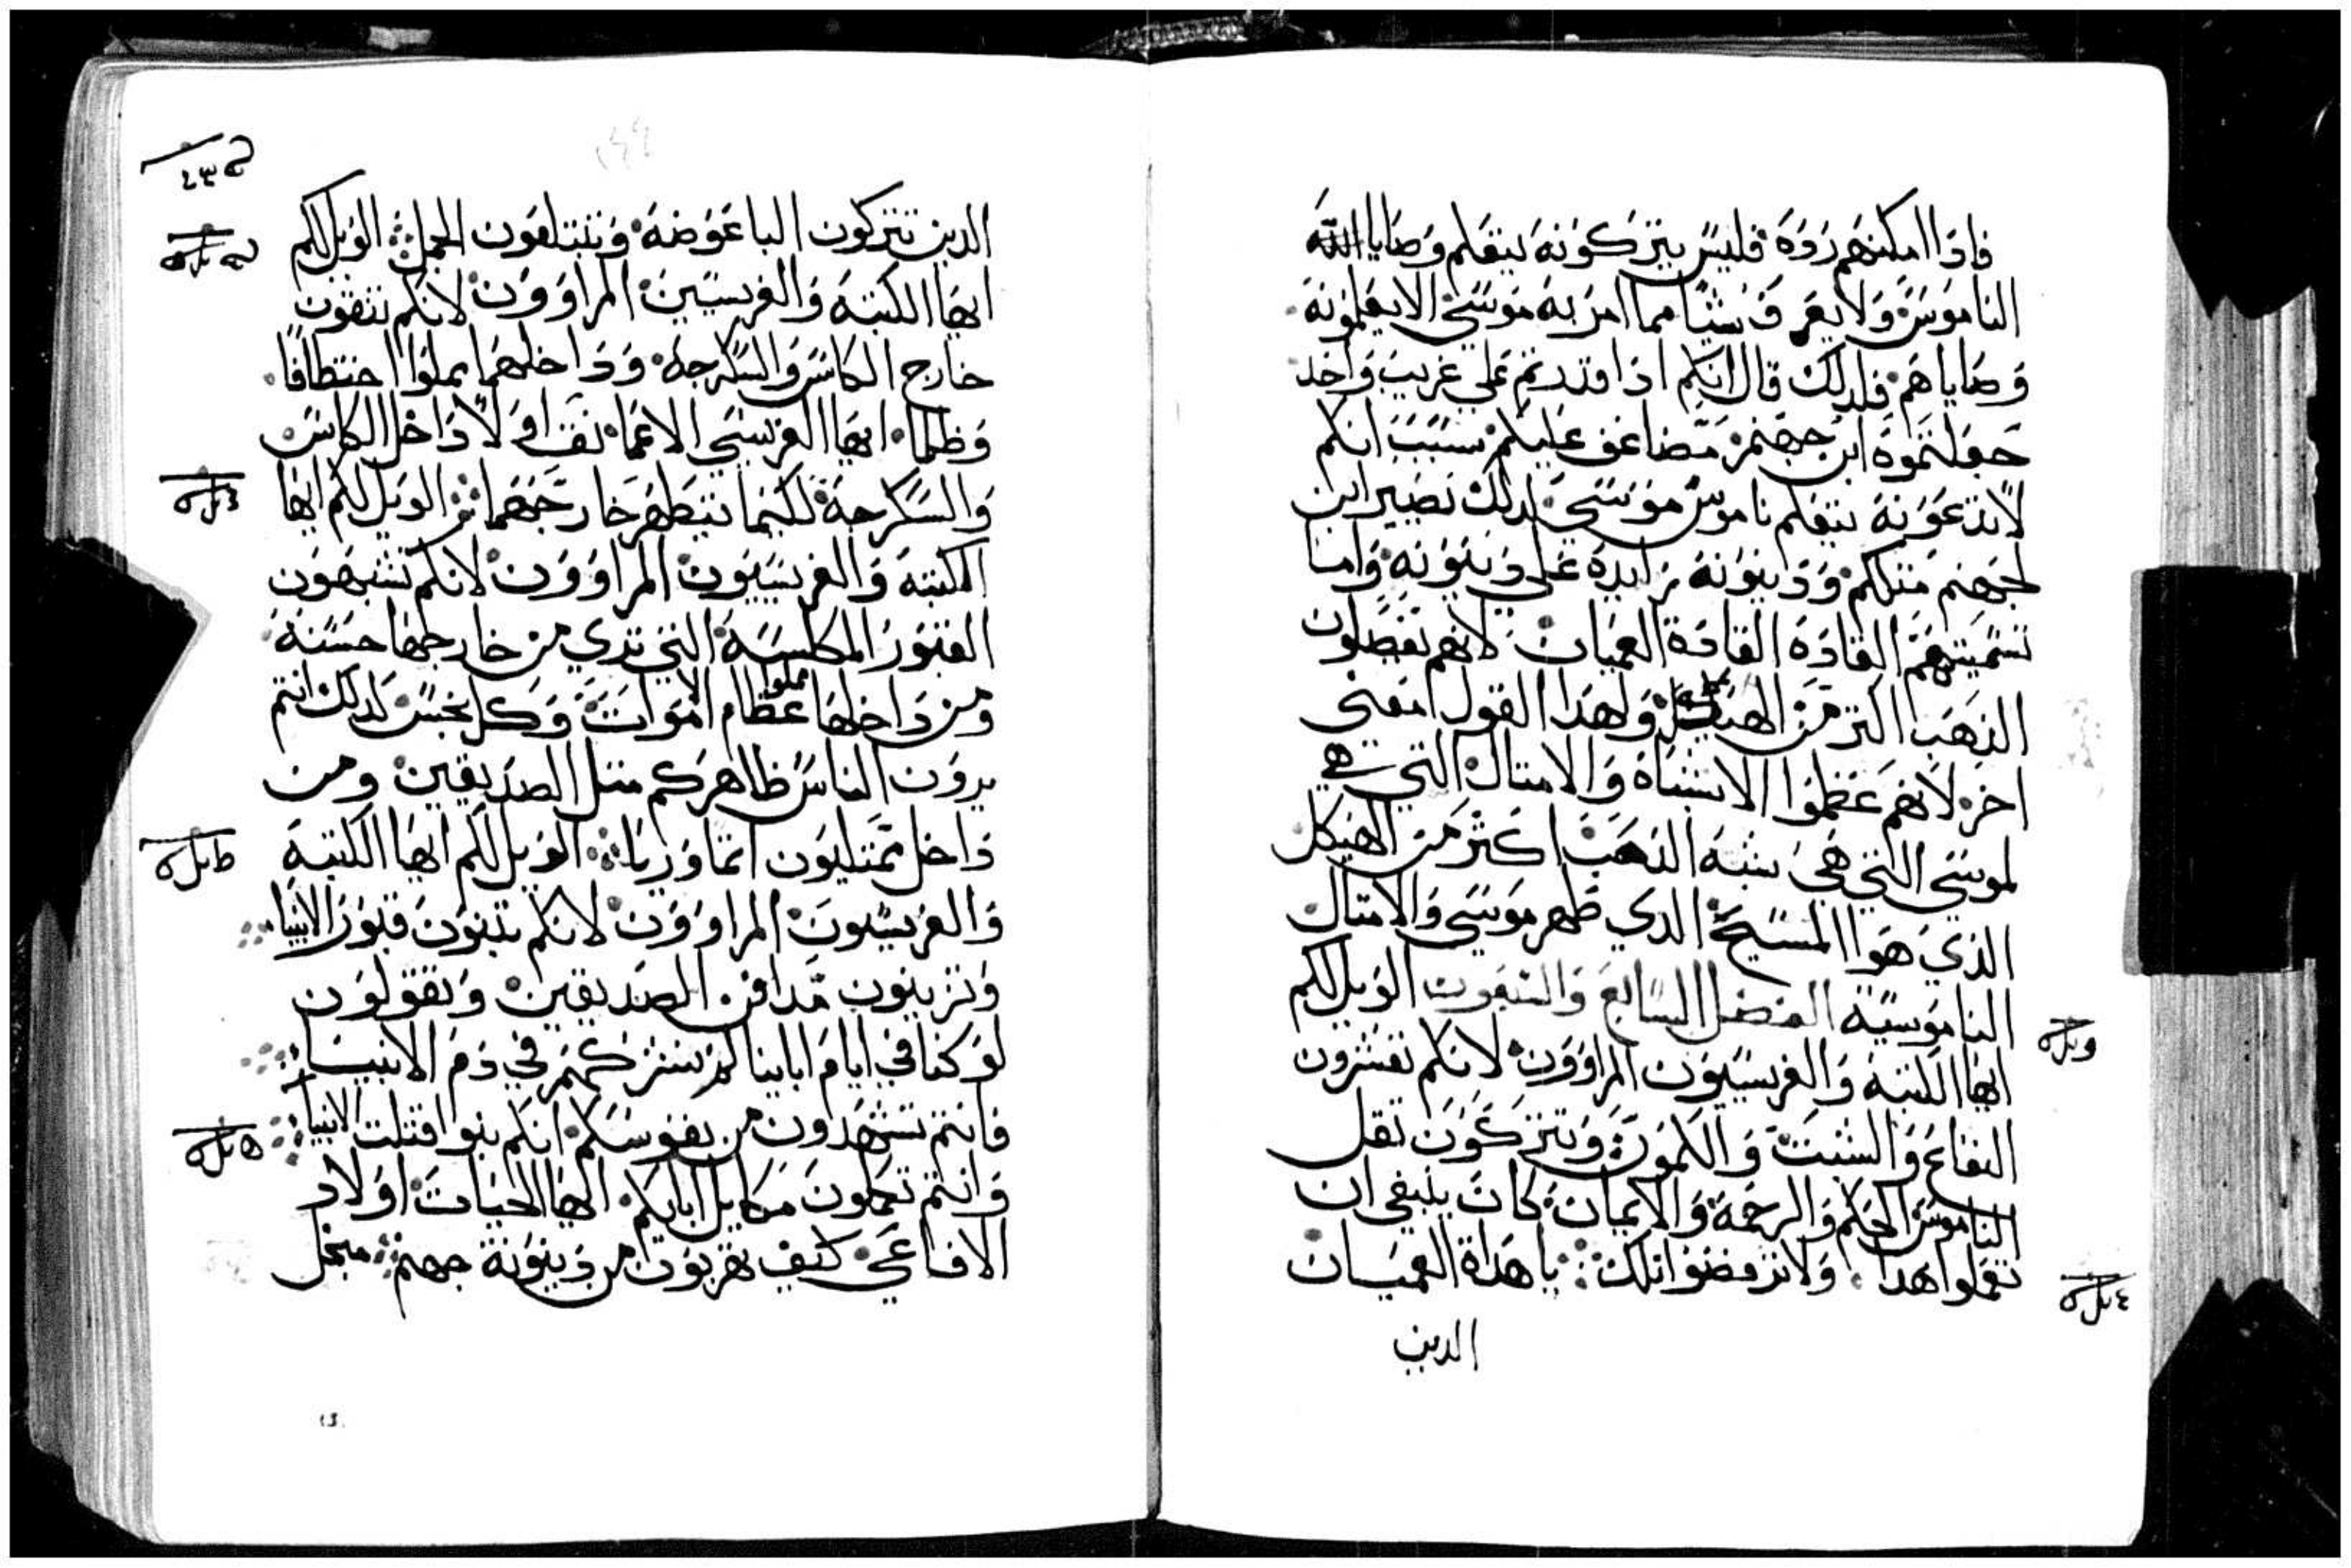 فاذا امكنهم ردوه فليس يتركونه يتعلم وصايا الله
الناموس ولا يعرف شيا مما امر به موسي الا يعلمونه
وصاياهم فلدلك قال انكم اذا قدرتم علي غريب واحد
جعلتموه ابن جهنم مضاعف عليكم بسبب انكم
لا تدعونه يتعلم ناموس موسي لدلك تصير ابن
لجهنم متلكم ودينونه زايده علي دينونه واما
تسميتهم القاده القادة العميان لانهم يفضلون
الذهب اكتر من الهيكل ولهدا القول معني
اخر لانهم عظموا الاشباه والامتال التي هي
لموسي التي هي شبه الذهب اكثر من الهيكل
الذي هوا المسيح الدي ظهر موسي والامتال
الناموسيه الفصل السابع والتسعون الويل لكم
ايها الكتبه والفريسيون المراوون لانكم تعشرون
النعاع والشبت والكمون وتتركون ثقل
الناموس الحكم والرحمة والايمان كان ينبغي ان
تعملوا هدا ولا ترفضوا تلك يا هداة العميان
الدين
الدين تتركون الباعوضه وتبتلعون الجمل الويل لكم
ايها الكتبه والفريسيين المراوون لانكم تنقون
خارج الكاس والسكرجه وداخلهما مملوا اختطافا
وظلما ايها الفريسي الاعما نقف اولا داخل الكاس
والسكرجة لكيما يتطهر خارجهما الويل لكم ايها
الكتبه والفريسيون المراوون لانكم تشبهون
القبور المكلسه التي تري من خارجها حسنه
ومن داخلها مملوا عظام الاموات وكل نجس لدلك انتم
يرون الناس ظاهركم متل الصديقين ومن
داخل تمتليون اتما وريا الويل لكم ايها الكتبة
والفريسيون المراوون لانكم تبنون قبور الانبيا
وتزينون مدافن الصديقين وتقولون
لو كنا في ايام اباينا لم نشركهم في دم الانبيا
فانتم تشهدون من نفوسكم انكم بنوا قتلت الانبيا
وانتم تكملون مكاييل ابايكم ايها الحيات اولاد
الافاعي كيف تهربون من دينونة جهنم